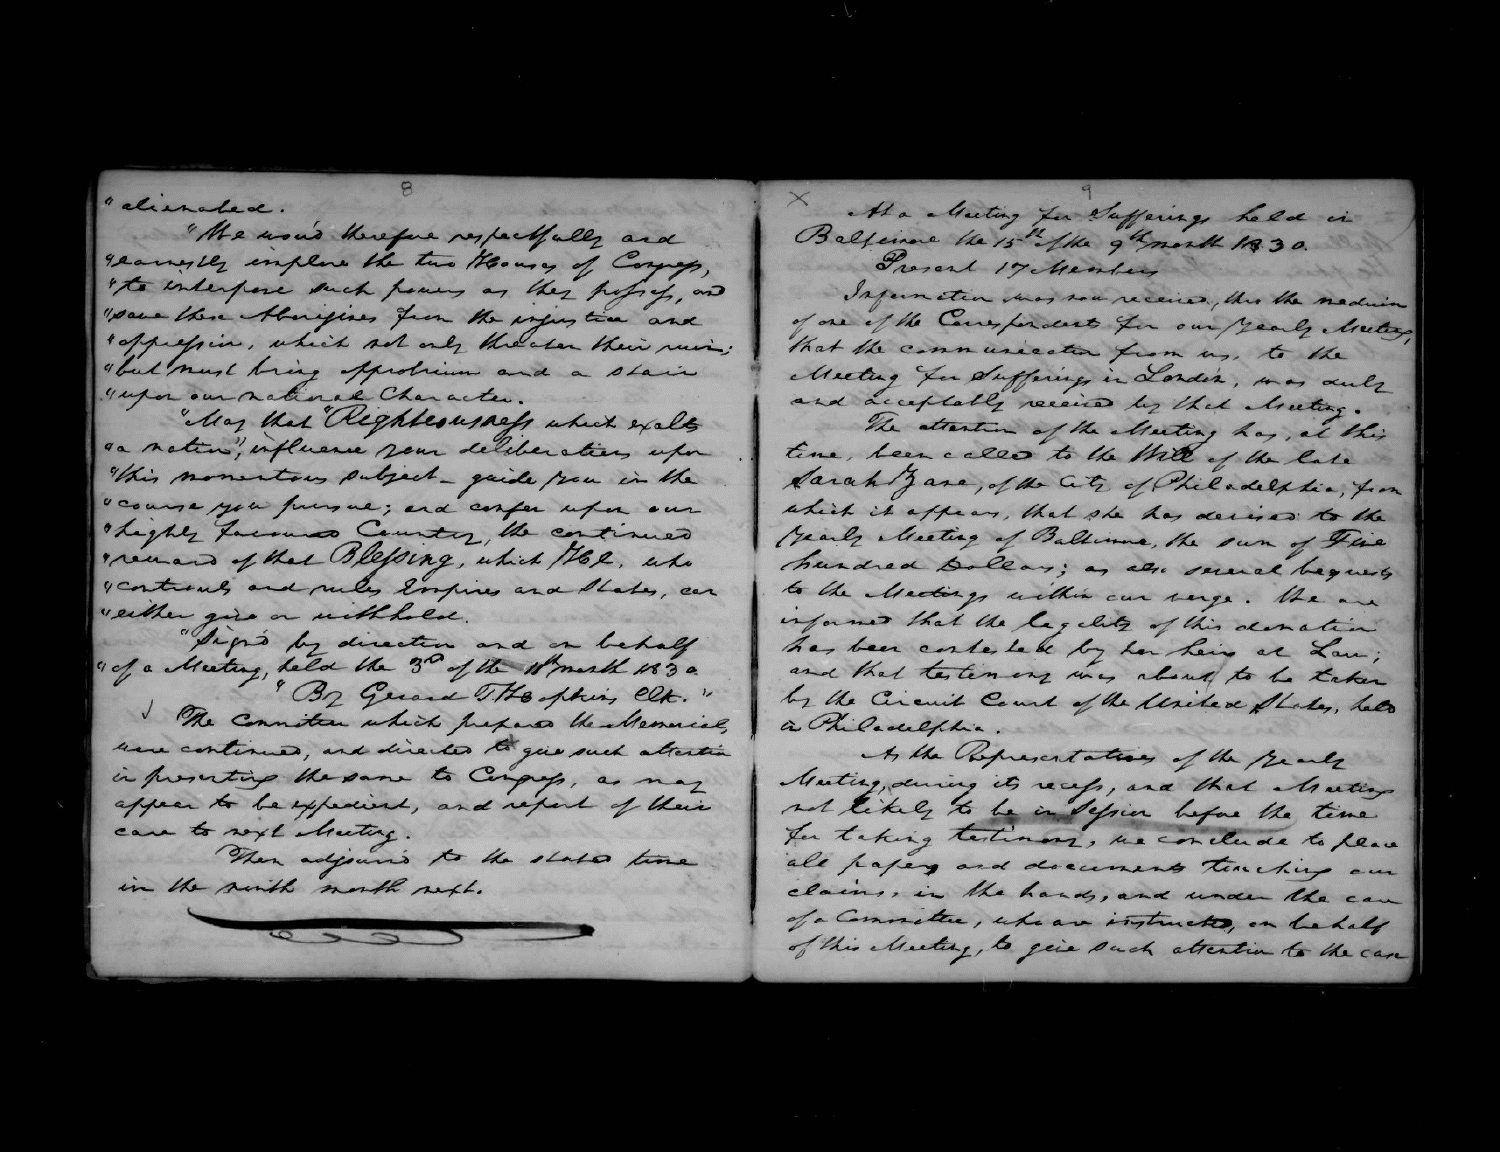 8
"alienated.
"We would therefore respectfully and
"earnestly implore the two Houses of Congress,
"to interpose such powers as they possess, and
"save these Aborigines from the injustice and
"oppression, which not only threaten their ruin;
"but must bring opprobrium and a stain
"upon our national Character.
"May that "Righteousness which exalts
"a nation", influence your deliberations upon
"this momentous subject – guide you in the
"course you pursue; and confer upon our
"highly favoured Country, the continued
"reward of that Blessing, which He, who
"controuls and rules Empires and States, can
"either give or withhold.
"Sign'd by direction and on behalf
"of a Meeting, held the 3d of the month 1830
"By Gerard T Hopkins Clk."
The Committee which prepared the Memorial,
were continued, and directed to give such attention
in presenting the same to Congress, as may
appear to be expedient, and report of their
care to next Meeting.
Then adjourn'd to the stated time
in the ninth month next.
X
9
At a Meeting for Sufferings held in
Baltimore the 15th of the 9th month 1830.
Present 17 Members
Information was now received, thro the medium
of one of the Correspondents for our Yearly Meeting,
that the communication from us, to the
Meeting for Sufferings in London, was duly
and acceptably received by that Meeting.
The attention of the Meeting has, at this
time, been called to the Will of the late
Sarah Zane, of the City of Philadelphia, from
which it appears, that she has devised to the
Yearly Meeting of Baltimore, the sum of Five
hundred Dollars; as also several bequests
to the Meetings within our verge. We are
informed that the legality of this donation
has been contested by her heirs at Law;
and that testimony was about to be taken
by the Circuit Court of the United States, held
in Philadelphia.
As the Representatives of the Yearly
Meeting, during its recess, and that Meeting
not likely to be in Session before the time
for taking testimony, we conclude to place
all papers and documents touching our
claims, in the hands, and under the care
of a Committee, who are instructed, on behalf
of this Meeting, to give such attention to the case